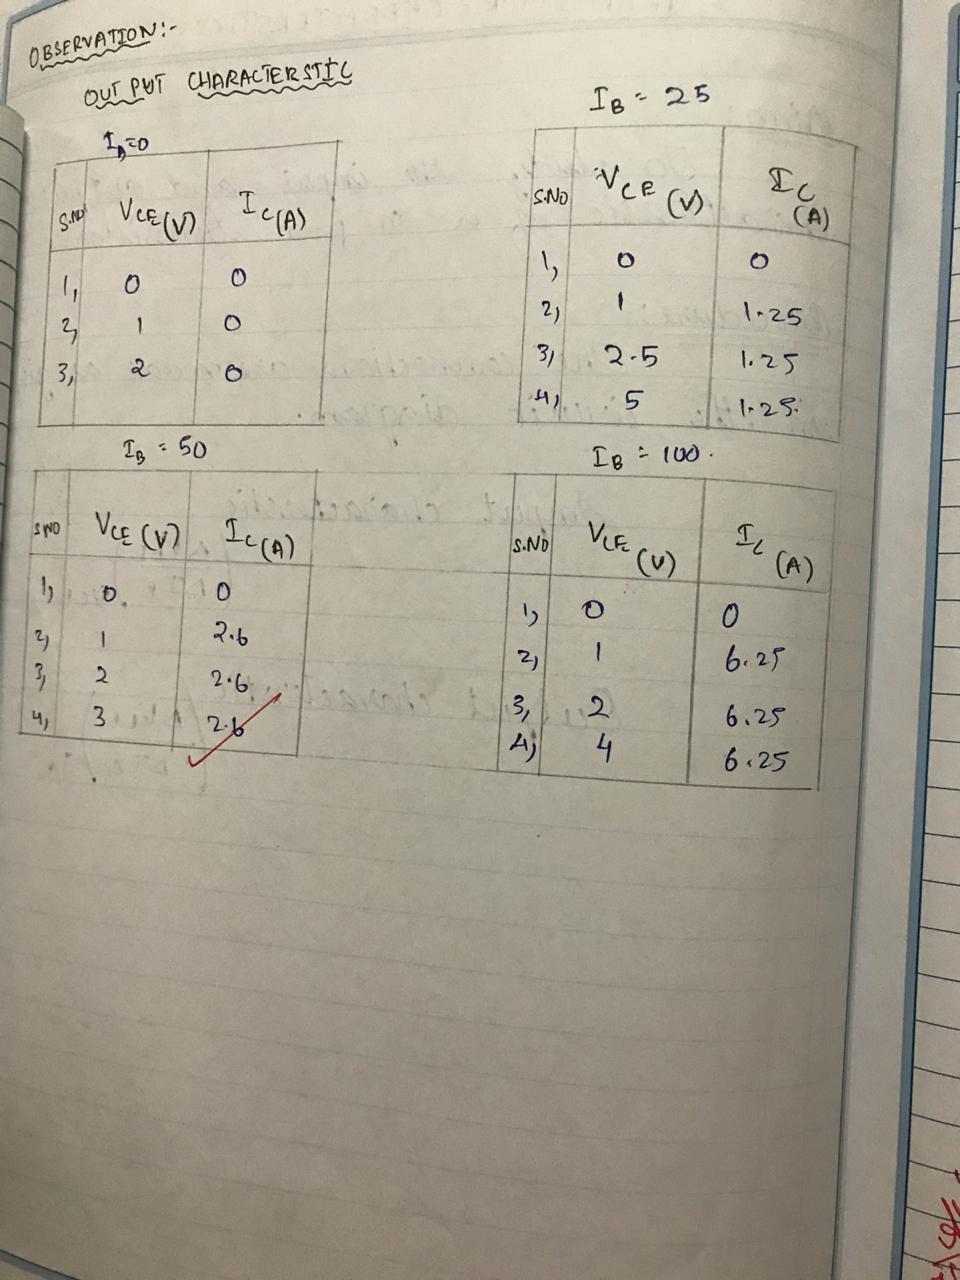 OBSERVATION:-
OUT PUT CHARACTERSTIC
I_B=0
S.NO V_CE (V) I_C (A)
1, 0 0
2, 1 0
3, 2 0
I_B = 25
S.NO V_CE (V) I_C (A)
1, 0 0
2, 1 1.25
3, 2.5 1.25
4, 5 1.25.
I_B = 50
S NO V_CE (V) I_C (A)
1, 0. 0
2, 1 2.6
3, 2 2.6
4, 3 2.6
I_B = 100.
S.NO V_CE (V) I_C (A)
1, 0 0
2, 1 6.25
3, 2 6.25
4, 4 6.25